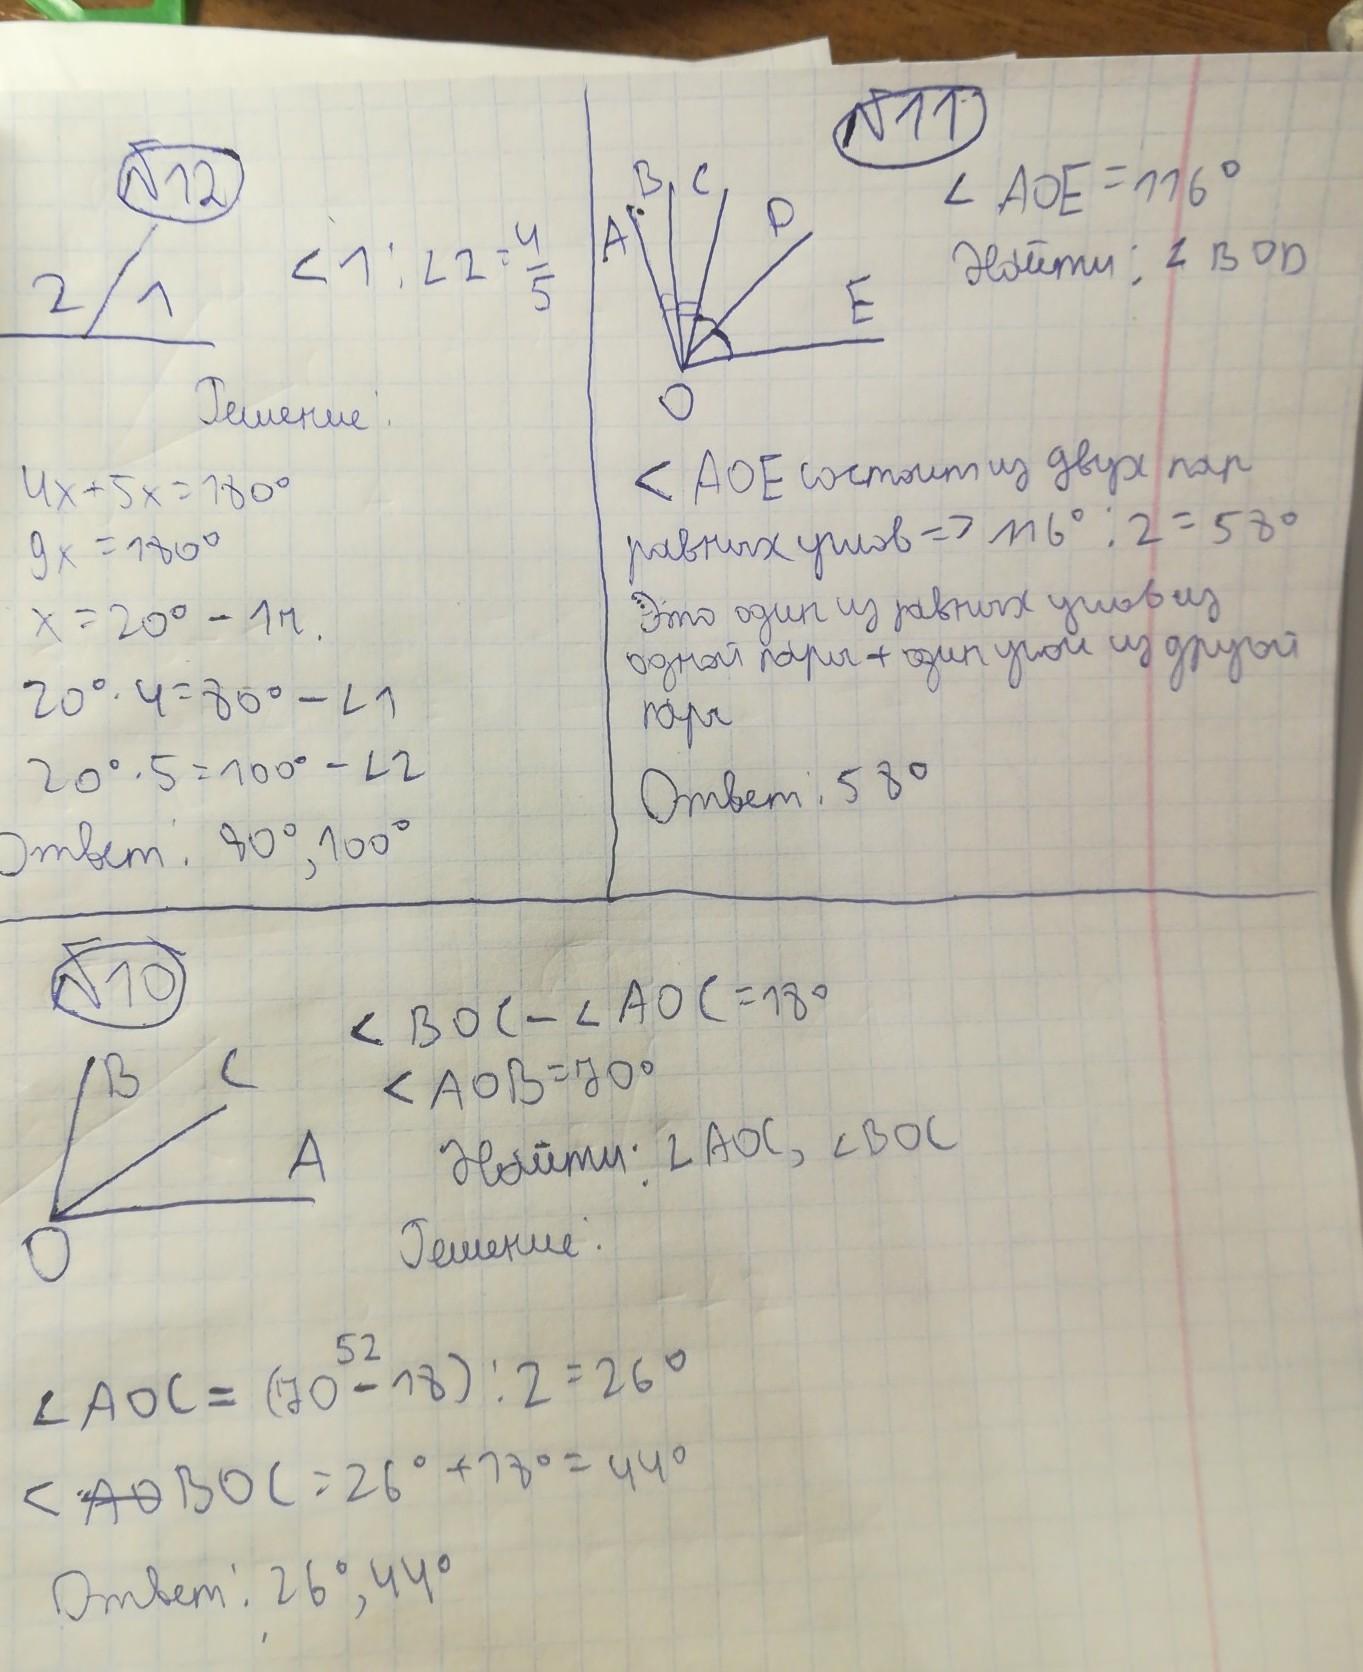 N12
2 1
<1:∠2=4/5
Решение:
4x+5x=180°
9x=180°
x=20° - 1ч.
20°·4=80° - ∠1
20°·5=100° - ∠2
Ответ: 80°, 100°
N11
A B C D E O
< AOE = 116°
Найти: ∠BOD
< AOE состоит из двух пар
равных углов => 116° : 2 = 58°
Это один из равных углов из
одной пары + один угол из другой
пары
Ответ: 58°
N10
B C A O
< BOC - ∠AOC = 18°
< AOB = 70°
Найти: ∠AOC, ∠BOC
Решение:
52
∠AOC = (70-18) : 2 = 26°
< AO BOC = 26° + 18° = 44°
Ответ: 26°, 44°